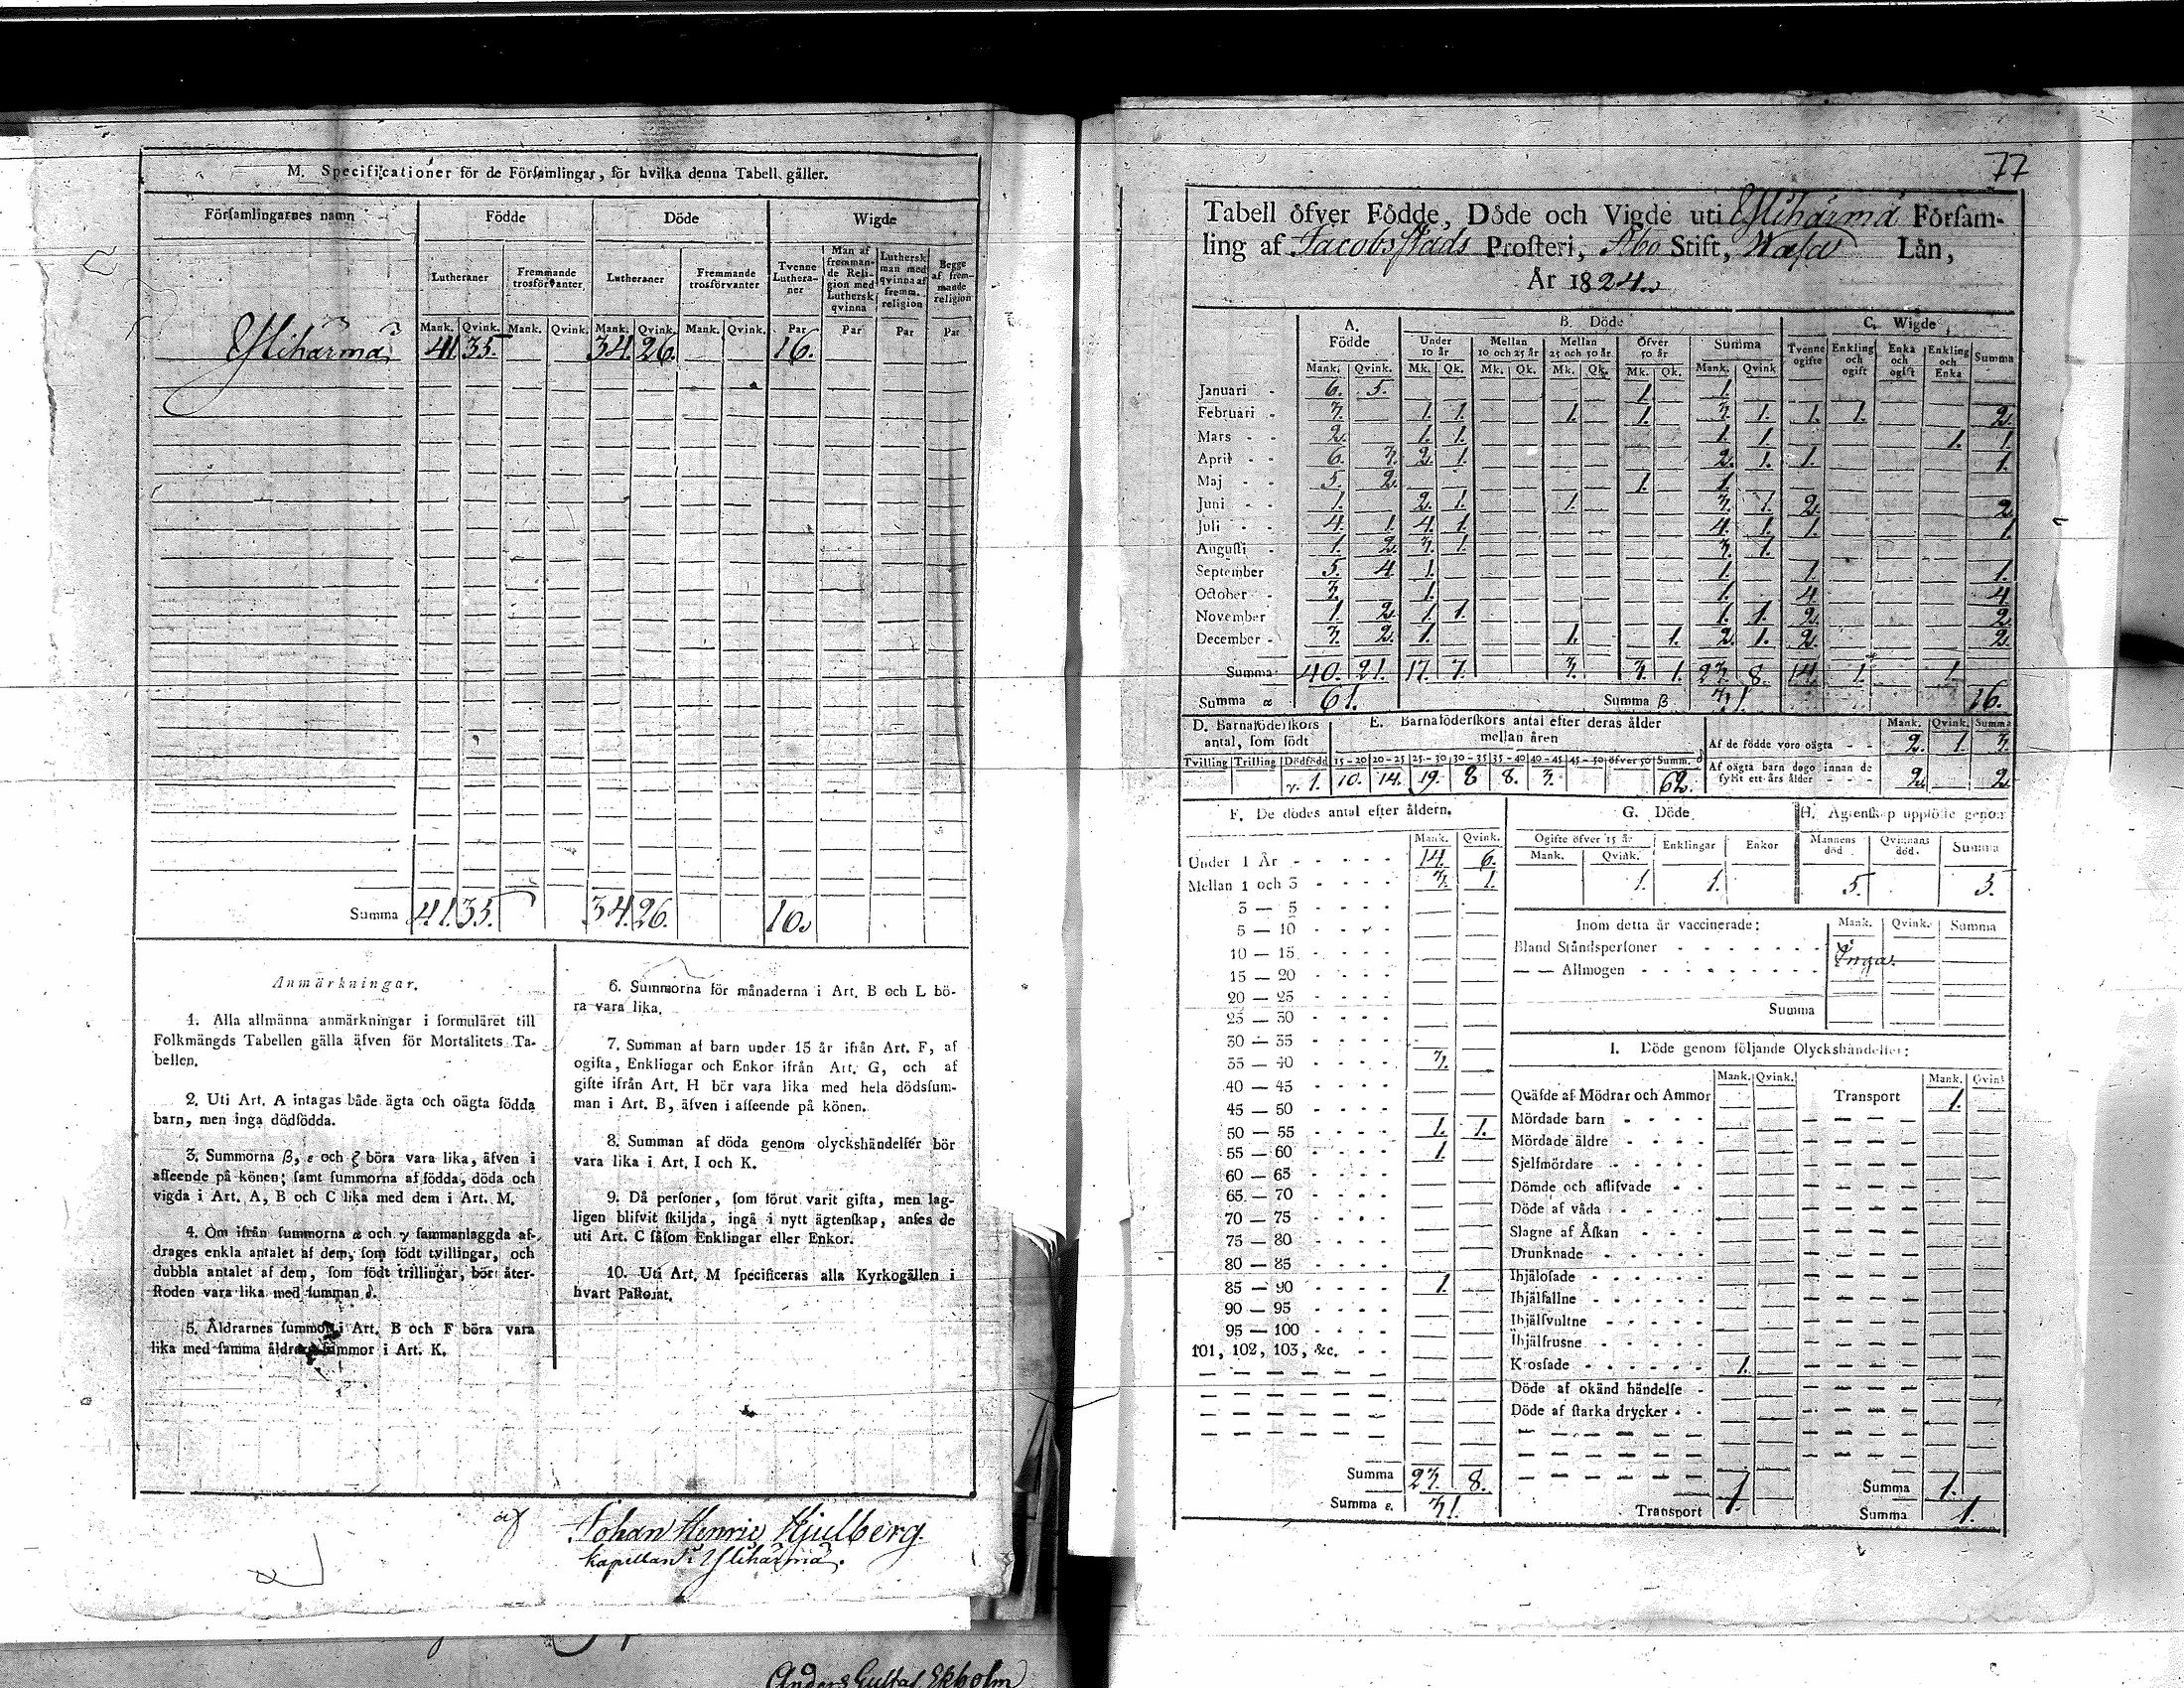 M. Specificationer för de Församlingar, för hvilka denna Tabell gäller.
Församlingarnes namn Födde Döde Wigde
Lutheraner Fremmande trosförvanter Lutheraner Fremmande trosförvanter Tvenne Lutheraner Man af fremmande Religion med Luthersk qvinna Luthersk man med qvinna af fremm. religion Begge af fremmande religion
Mank. Qvink. Mank. Qvink. Mank. Qvink. Mank. Qvink. Par Par Par Par
Ylihärmä 41. 35. 34. 26. 16.
Summa 41. 35. 34. 26. 16.
Anmärkningar.
1. Alla allmänna anmärkningar i formuläret till
Folkmängds Tabellen gälla äfven för Mortalitets Ta-
bellen.
2. Uti Art. A intagas både ägta och oägta födda
barn, men inga dödfödda.
3. Summorna β, ε och ζ böra vara lika, äfven i
afseende på könen; samt summorna af födda, döda och
vigda i Art. A, B och C lika med dem i Art. M.
4. Om ifrån summorna α och γ sammanlaggda af-
drages enkla antalet af dem, som födt tvillingar, och
dubbla antalet af dem, som födt trillingar, bör åter-
stoden vara lika med summan δ.
5. Åldrarnes summor i Art. B och F böra vara
lika med samma åldrars summor i Art. K.
6. Summorna för månaderna i Art. B och L bö-
ra vara lika.
7. Summan af barn under 15 år ifrån Art. F, af
ogifta, Enklingar och Enkor ifrån Art. G, och af
gifte ifrån Art. H bör vara lika med hela dödssum-
man i Art. B, äfven i afseende på könen.
8. Summan af döda genom olyckshändelser bör
vara lika i Art. I och K.
9. Då personer, som förut varit gifta, men lag-
ligen blifvit skiljda, ingå i nytt ägtenskap, anses de
uti Art. C såsom Enklingar eller Enkor.
10. Uti Art. M specificeras alla Kyrkogällen i
hvart Pastorat.
af Johan Henric Hjulberg.
kapellan i Ylihärmä.
Anders Gustaf Ekholm
77
Tabell öfver Födde, Döde och Vigde uti Ylihärmä Försam-
ling af Jacobsstads Prosteri, Åbo Stift, Wasa Län,
År 1824.
A. Födde B. Döde C. Wigde
Under 10 år Mellan 10 och 25 år Mellan 25 och 50 år Öfver 50 år Summa Tvenne ogifte Enkling och ogift Enka och ogift Enkling och Enka Summa
Mank. Qvink. Mk. Qk. Mk. Qk. Mk. Qk. Mk. Qk. Mank. Qvink
Januari 6. 5. 1. 1.
Februari 3. 1. 1. 1. 1. 3. 1. 1. 1. 2.
Mars 2. 1. 1. 1. 1. 1. 1.
April 6. 3. 2. 1. 2. 1. 1. 1.
Maj 5. 2. 1. 1.
Juni 1. 2. 1. 1. 3. 1. 2. 2.
Juli 4. 1. 4. 1. 4. 1. 1. 1.
Augusti 1. 2. 3. 1. 3. 1.
September 5. 4. 1. 1. 1. 1.
October 3. 1. 1. 4. 4.
November 1. 2. 1. 1. 1. 1. 2. 2.
December 3. 2. 1. 1. 1. 2. 1. 2. 2.
Summa 40. 21. 17. 7. 3. 3. 1. 23. 8. 14. 1. 1.
Summa α 61. Summa β 31. 16.
D. Barnaföderskors antal, som födt
E. Barnaföderskors antal efter deras ålder mellan åren
Mank. Qvink. Summa
Af de födde voro oägta 2. 1. 3.
Af oägta barn dogo innan de fyllt ett års ålder 2. 2.
Tvilling Trilling Dödfödd 15-20 20-25 25-30 30-35 35-40 40-45 45-50 öfver 50 Summ. δ
γ. 1. 10. 14. 19. 8 8. 3. 62.
F. De dödes antal efter åldern.
Mank. Qvink.
Under 1 År 14. 6.
Mellan 1 och 3 3. 1.
3 — 5
5 — 10
10 — 15
15 — 20
20 — 25
25 — 30
30 — 35
35 — 40 3.
40 — 45
45 — 50
50 — 55 1. 1.
55 — 60 1.
60 — 65
65 — 70
70 — 75
75 — 80
80 — 85
85 — 90 1.
90 — 95
95 — 100
101, 102, 103, &c.
Summa 23. 8.
Summa ε. 31.
G. Döde
Ogifte öfver 15 år Enklingar Enkor
Mank. Qvink.
1. 1.
H. Ägtenskap upplöste genom
Mannens död Qvinnans död. Summa
5. 5.
Inom detta år vaccinerade: Mank. Qvink. Summa
Bland Ståndspersoner
— — Allmogen Inga.
Summa
I. Döde genom följande Olyckshändelser:
Mank. Qvink. Mank. Qvink
Quäfde af Mödrar och Ammor Transport 1.
Mördade barn
Mördade äldre
Sjelfmördare
Dömde och aflifvade
Döde af våda
Slagne af Åskan
Drunknade
Ihjälosade
Ihjälfallne
Ihjälsvultne
Ihjälfrusne
Krossade 1.
Döde af okänd händelse
Döde af starka drycker
Transport 1. Summa 1.
Summa 1.